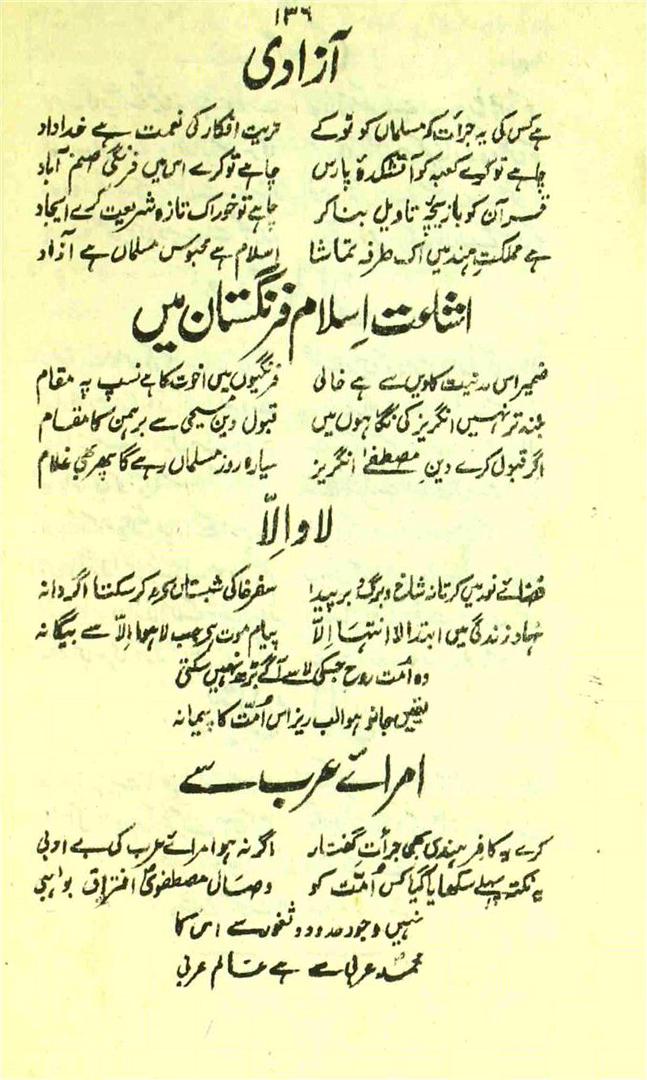 ۱۳۶
آزادی
ہے کس کی یہ جرأت کہ مسلماں کو ٹوکے حریتِ افکار کی نعمت ہے خداداد
چاہے تو کرے کعبہ کو آتشکدۂ پارس چاہے تو کرے اس میں فرنگی صنم آباد
قرآن کو بازیچۂ تاویل بنا کر چاہے تو خود اک تازہ شریعت کرے ایجاد
ہے مملکتِ ہند میں اک طرفہ تماشا اسلام ہے محبوس مسلماں ہے آزاد
اشاعتِ اسلام فرنگستان میں
ضمیر اس مدنیت کا دیں سے ہے خالی فرنگیوں میں اخوت کا ہے نسب پہ مقام
بلند تر نہیں انگریز کی نگاہوں میں قبولِ دینِ مسیحی سے برہمن کا مقام
اگر قبول کرے دینِ مصطفےٰ انگریز سیاہ روز مسلماں رہے گا پھر بھی غلام
لا و اِلّا
فضائے نور میں کرتا نہ شاخ و برگ و بر پیدا سفر خاکی شبستاں سے نہ کر سکتا اگر دانہ
نہادِ زندگی میں ابتدا لا انتہا اِلّا پیامِ موت ہے جب لا ہوا اِلّا سے بیگانہ
وہ اُمت روح جس کی لا سے آگے بڑھ نہیں سکتی
یقیں جانو ہوا لبریز اس اُمّت کا پیمانہ
امرائے عرب سے
کرے یہ کافرِ ہندی بھی جرأتِ گفتار اگر نہ ہو امرائے عرب کی بے ادبی
یہ نکتہ پہلے سکھایا گیا کس اُمّت کو وصالِ مصطفوی افتراقِ بولہبی
نہیں وجود حدود و ثغور سے اس کا
محمدِؐ عربی سے ہے عالمِ عربی